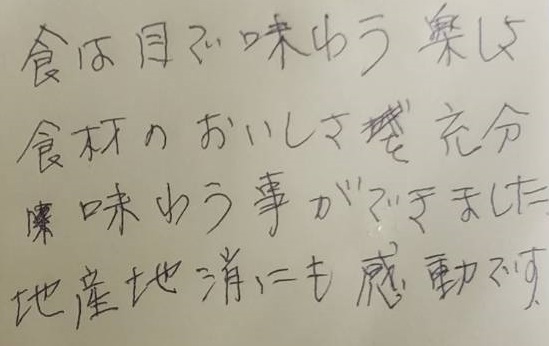 食は目で味わう楽しさ
食材のおいしさを充分
味わう事ができました
地産地消にも感動です。